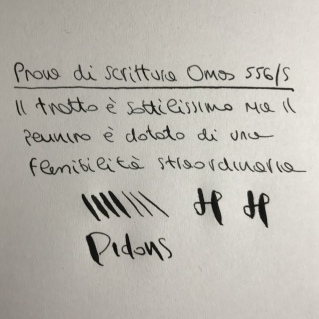 Prova di scrittura Omas 556/S
Il tratto è sottilissimo ma il
pennino è dotato di una
flessibilità straordinaria